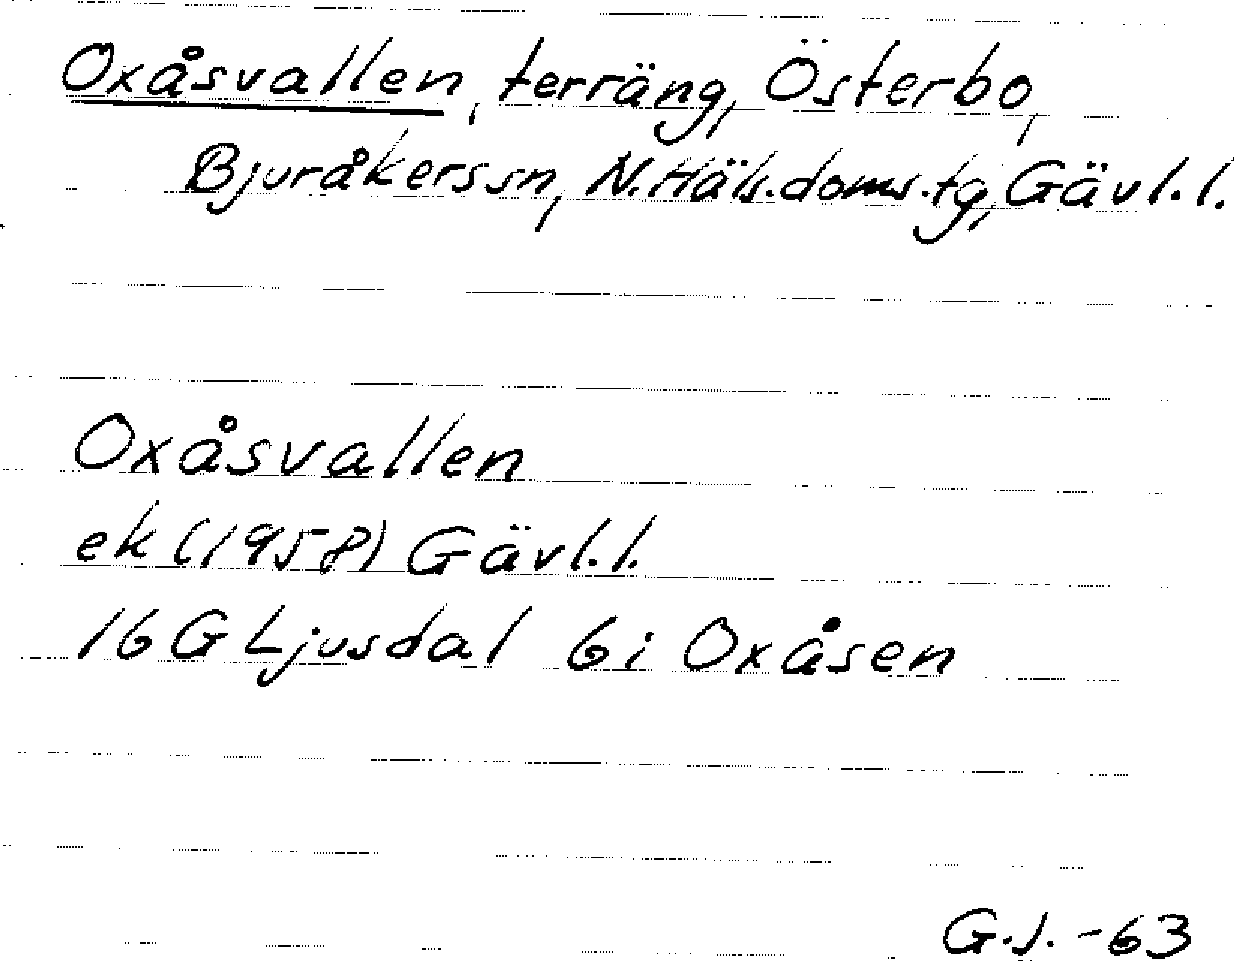 Oxåsvallen, terräng, Österbo,
Bjuråkerssn, N.Häls.doms.tg, Gävl.l.
Oxåsvallen
ek (1958) Gävl.l.
16 G Ljusdal 6 i Oxåsen
G.J. -63